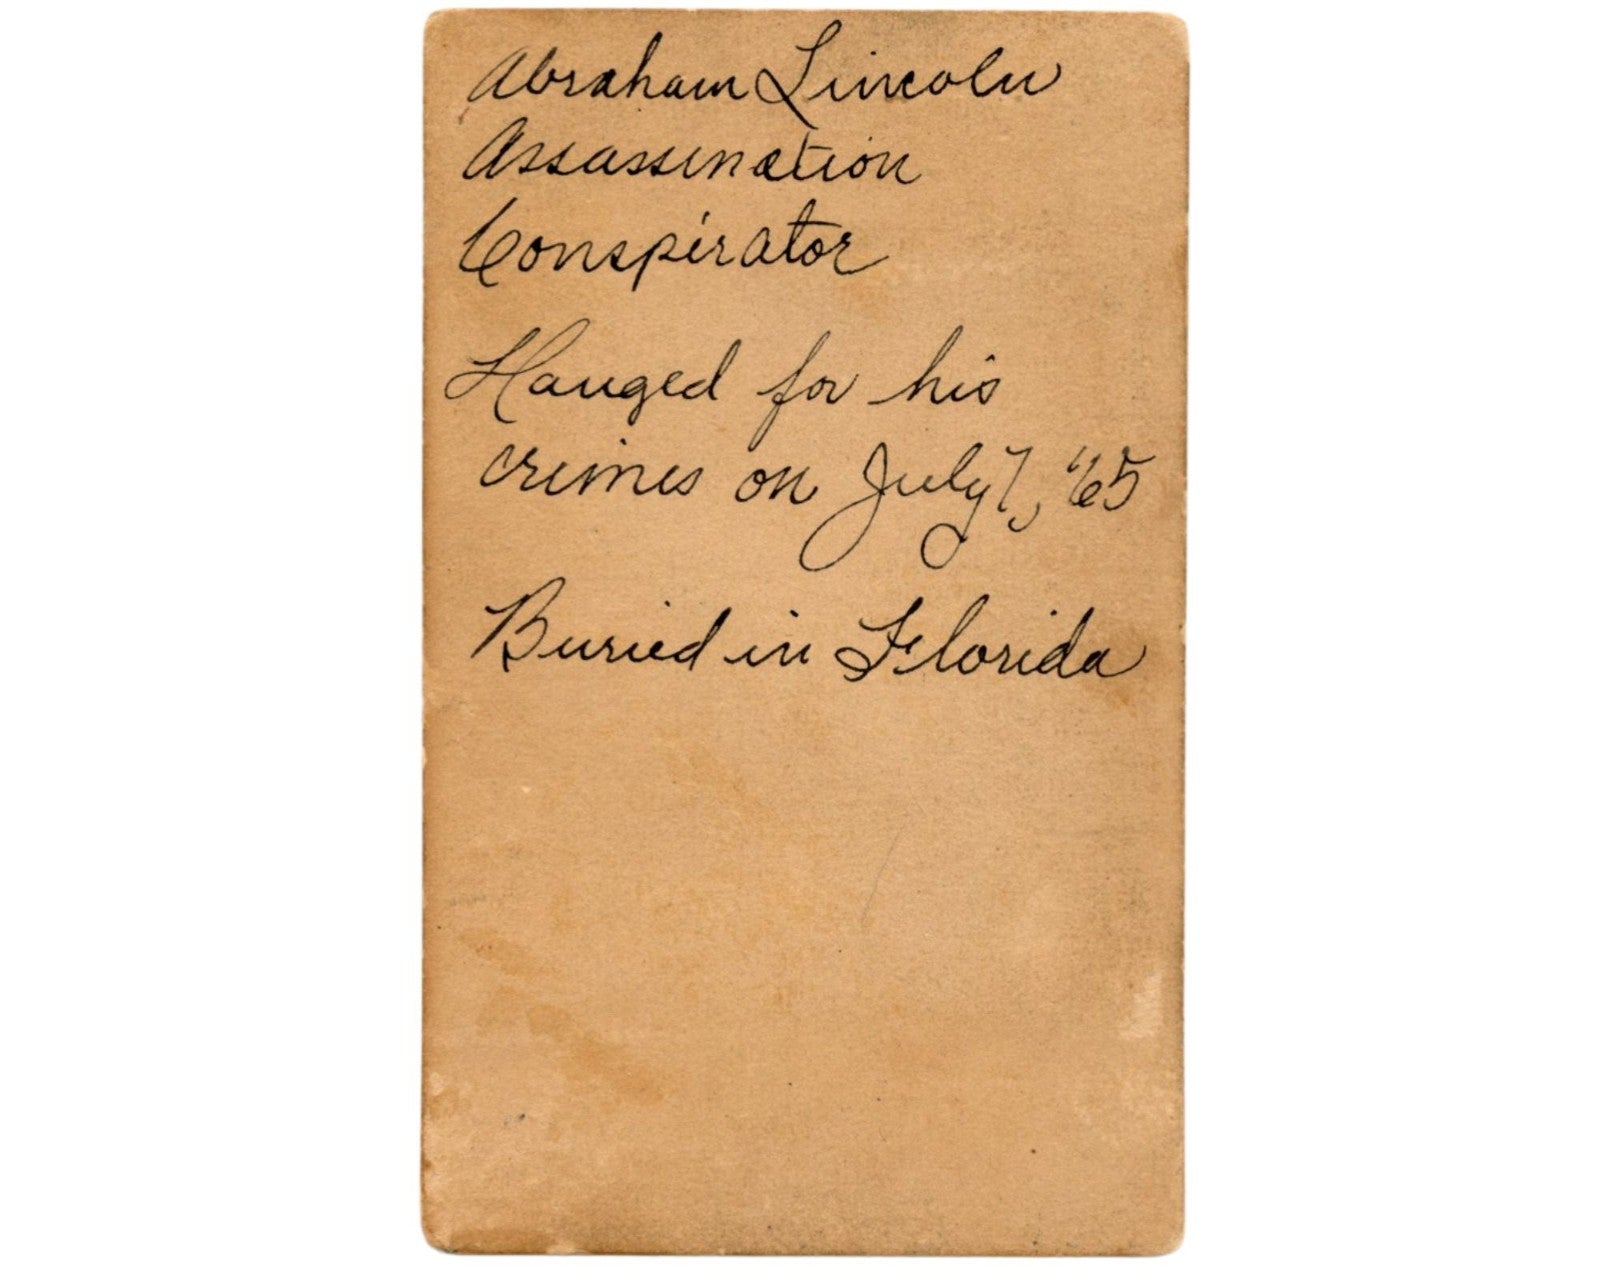 Abraham Lincoln
Assassination
Conspirator
Hanged for his
crimes on July 7, '65
Buried in Florida